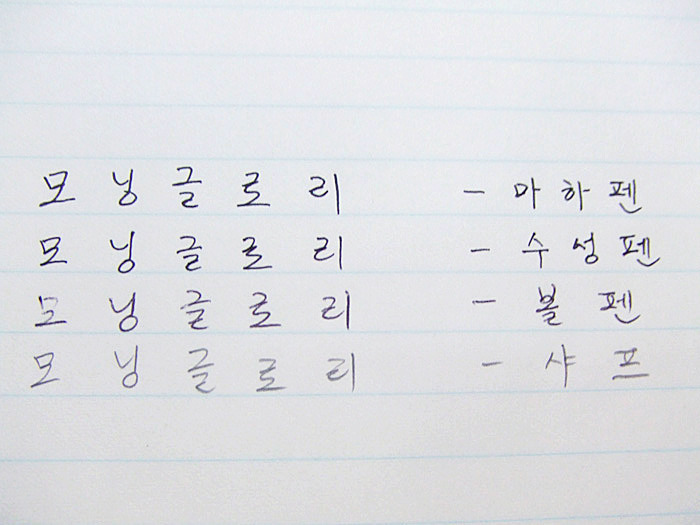 모닝글로리 - 마하펜
모닝글로리 - 수성펜
모닝글로리 - 볼펜
모닝글로리 - 샤프